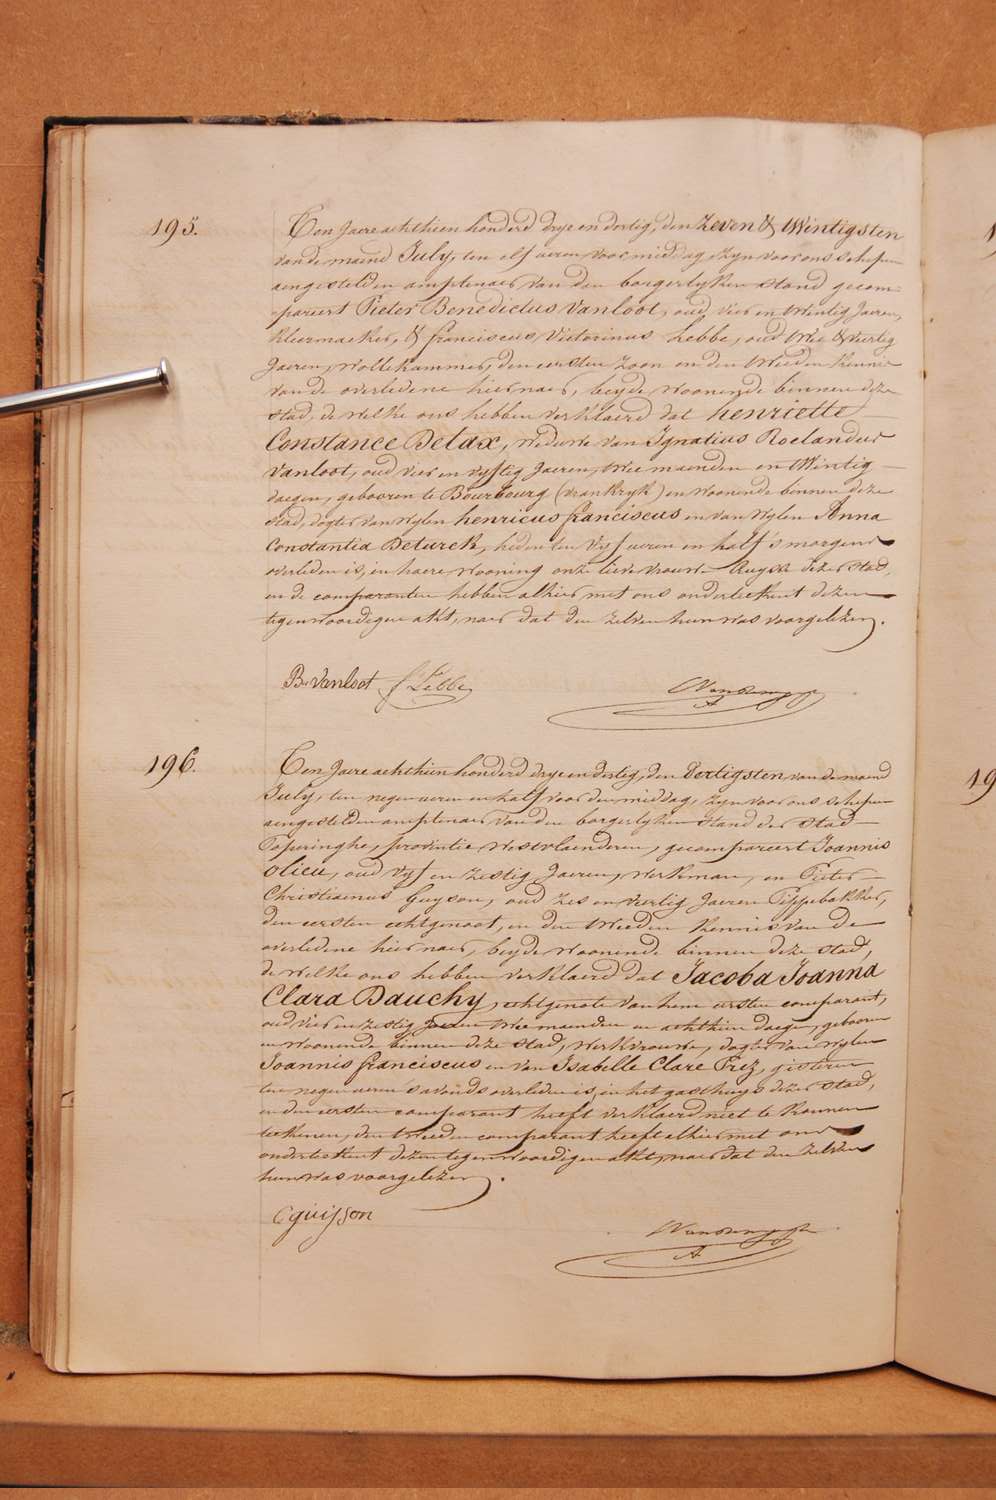 195.
Ten Jaere achthien honderd drye en dertig, den Zeven & Wintigsten
van de maend July, ten elf ueren voor middag zyn voor ons schepen
aengestelden amptenaer van den borgerlyken stand gecom-
-pareert Pieter Benedictus Vanloot, oud vier en twintig Jaeren,
kleermaeker, & franciscus Victorinus hebbe, oud twee & veertig
Jaeren, Wollekammer, den eersten zoon en den tweeden kennis
van de overledene hiernaer, beyde woonende binnen deze
stad, de welke ons hebben verklaerd dat henriette
Constance Detax, weduwe van Ignatius Roelandus
Vanloot, oud vier en vyftig Jaeren, twee maenden en twintig
daegen, gebooren te Bourbourg (vrankryk) en woonende binnen deze
stad, dogter van wylen henricus franciscus en van wylen Anna
Constantia Deturck, heden ten vyf ueren en half 's morgens
overleden is, in haere wooning onze lieve vrouwe Ruyse dezer stad,
en de comparanten hebben alhier met ons onderteekent dezen
tegenwoordigen akt, naer dat den zelven hun was voorgelezen.
B. Vanloot f hebbe
196.
Ten Jaere achthien honderd drye en dertig, den Dertigsten van de maend
July, ten negen ueren en half voor den middag, zyn voor ons schepen
aengestelden amptenaer van den borgerlyken stand der stad
Poperinghe, provintie Westvlaenderen, gecompareert Joannis
olieu, oud vyf en zestig Jaeren, werkman, en Pieter
Christiaenus Guyson, oud zes en veertig Jaeren Pippebakker,
den eersten echtgenoot, en den tweeden kennis van de
overledene hier naer, beyde woonende binnen deze stad,
de welke ons hebben verklaerd dat Jacoba Joanna
Clara Dauchy, echtgenote van hem eersten comparant,
oud vier en zestig Jaeren twee maenden en achthien daegen, gebooren
en woonende binnen deze stad, werkvrouwe, dogter van wylen
Joannis franciscus en van Isabelle Clare Prez, gisteren
ten negen ueren s'avonds overleden is, in het gasthuys dezer stad,
en den eersten comparant heeft verklaerd niet te konnen
teekenen, den tweeden comparant heeft alhier met ons
onderteekent dezen tegenwoordigen akt, naer dat den zelven
hun was voorgelezen.
C guisson